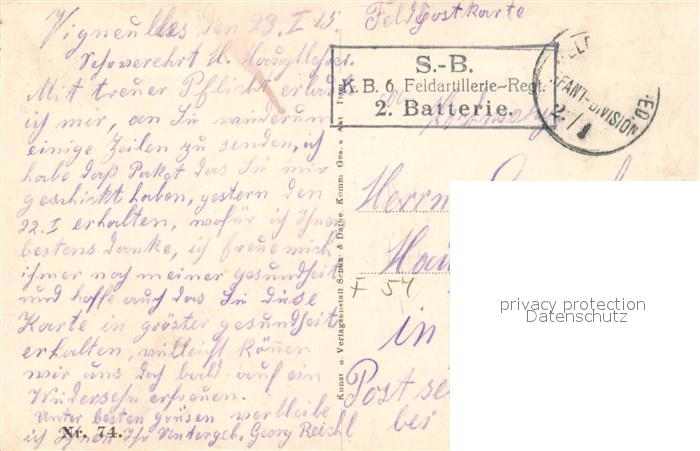 Vigneulles den 23.I.15
Feldpostkarte
Sehrverehrt H. Hauptlehrer.
Mit treuer Pflicht erlaube
ich mer, an Sie wiederum
einige Zeilen zu senden, ich
habe daß Paket das Sie mir
geschickt haben, gestern den
22.I erhalten, wofür ich Ihnen
bestens danke, ich freue mich
ihmer noch meiner gesundheit
und hoffe auch das Sie diese
Karte in gröster gesundheit
erhalten, villeicht können
wir uns doch bald auf ein
Widersehn erfreuen.
Unter besten grüsen verbleibe
ich Ihnen Ihr Untergeb. Georg Reichl
Nr. 74.
Kunst u. Verlagsanstalt Schaar & Dathe Komm. Ges. a. Akt. Trier
S.-B.
K. B. 6. Feldartillerie-Regt.
2. Batterie.
FANT.-DIVISION
ED.
an
Herrn
F 54
in
Post
bei
privacy protection
Datenschutz